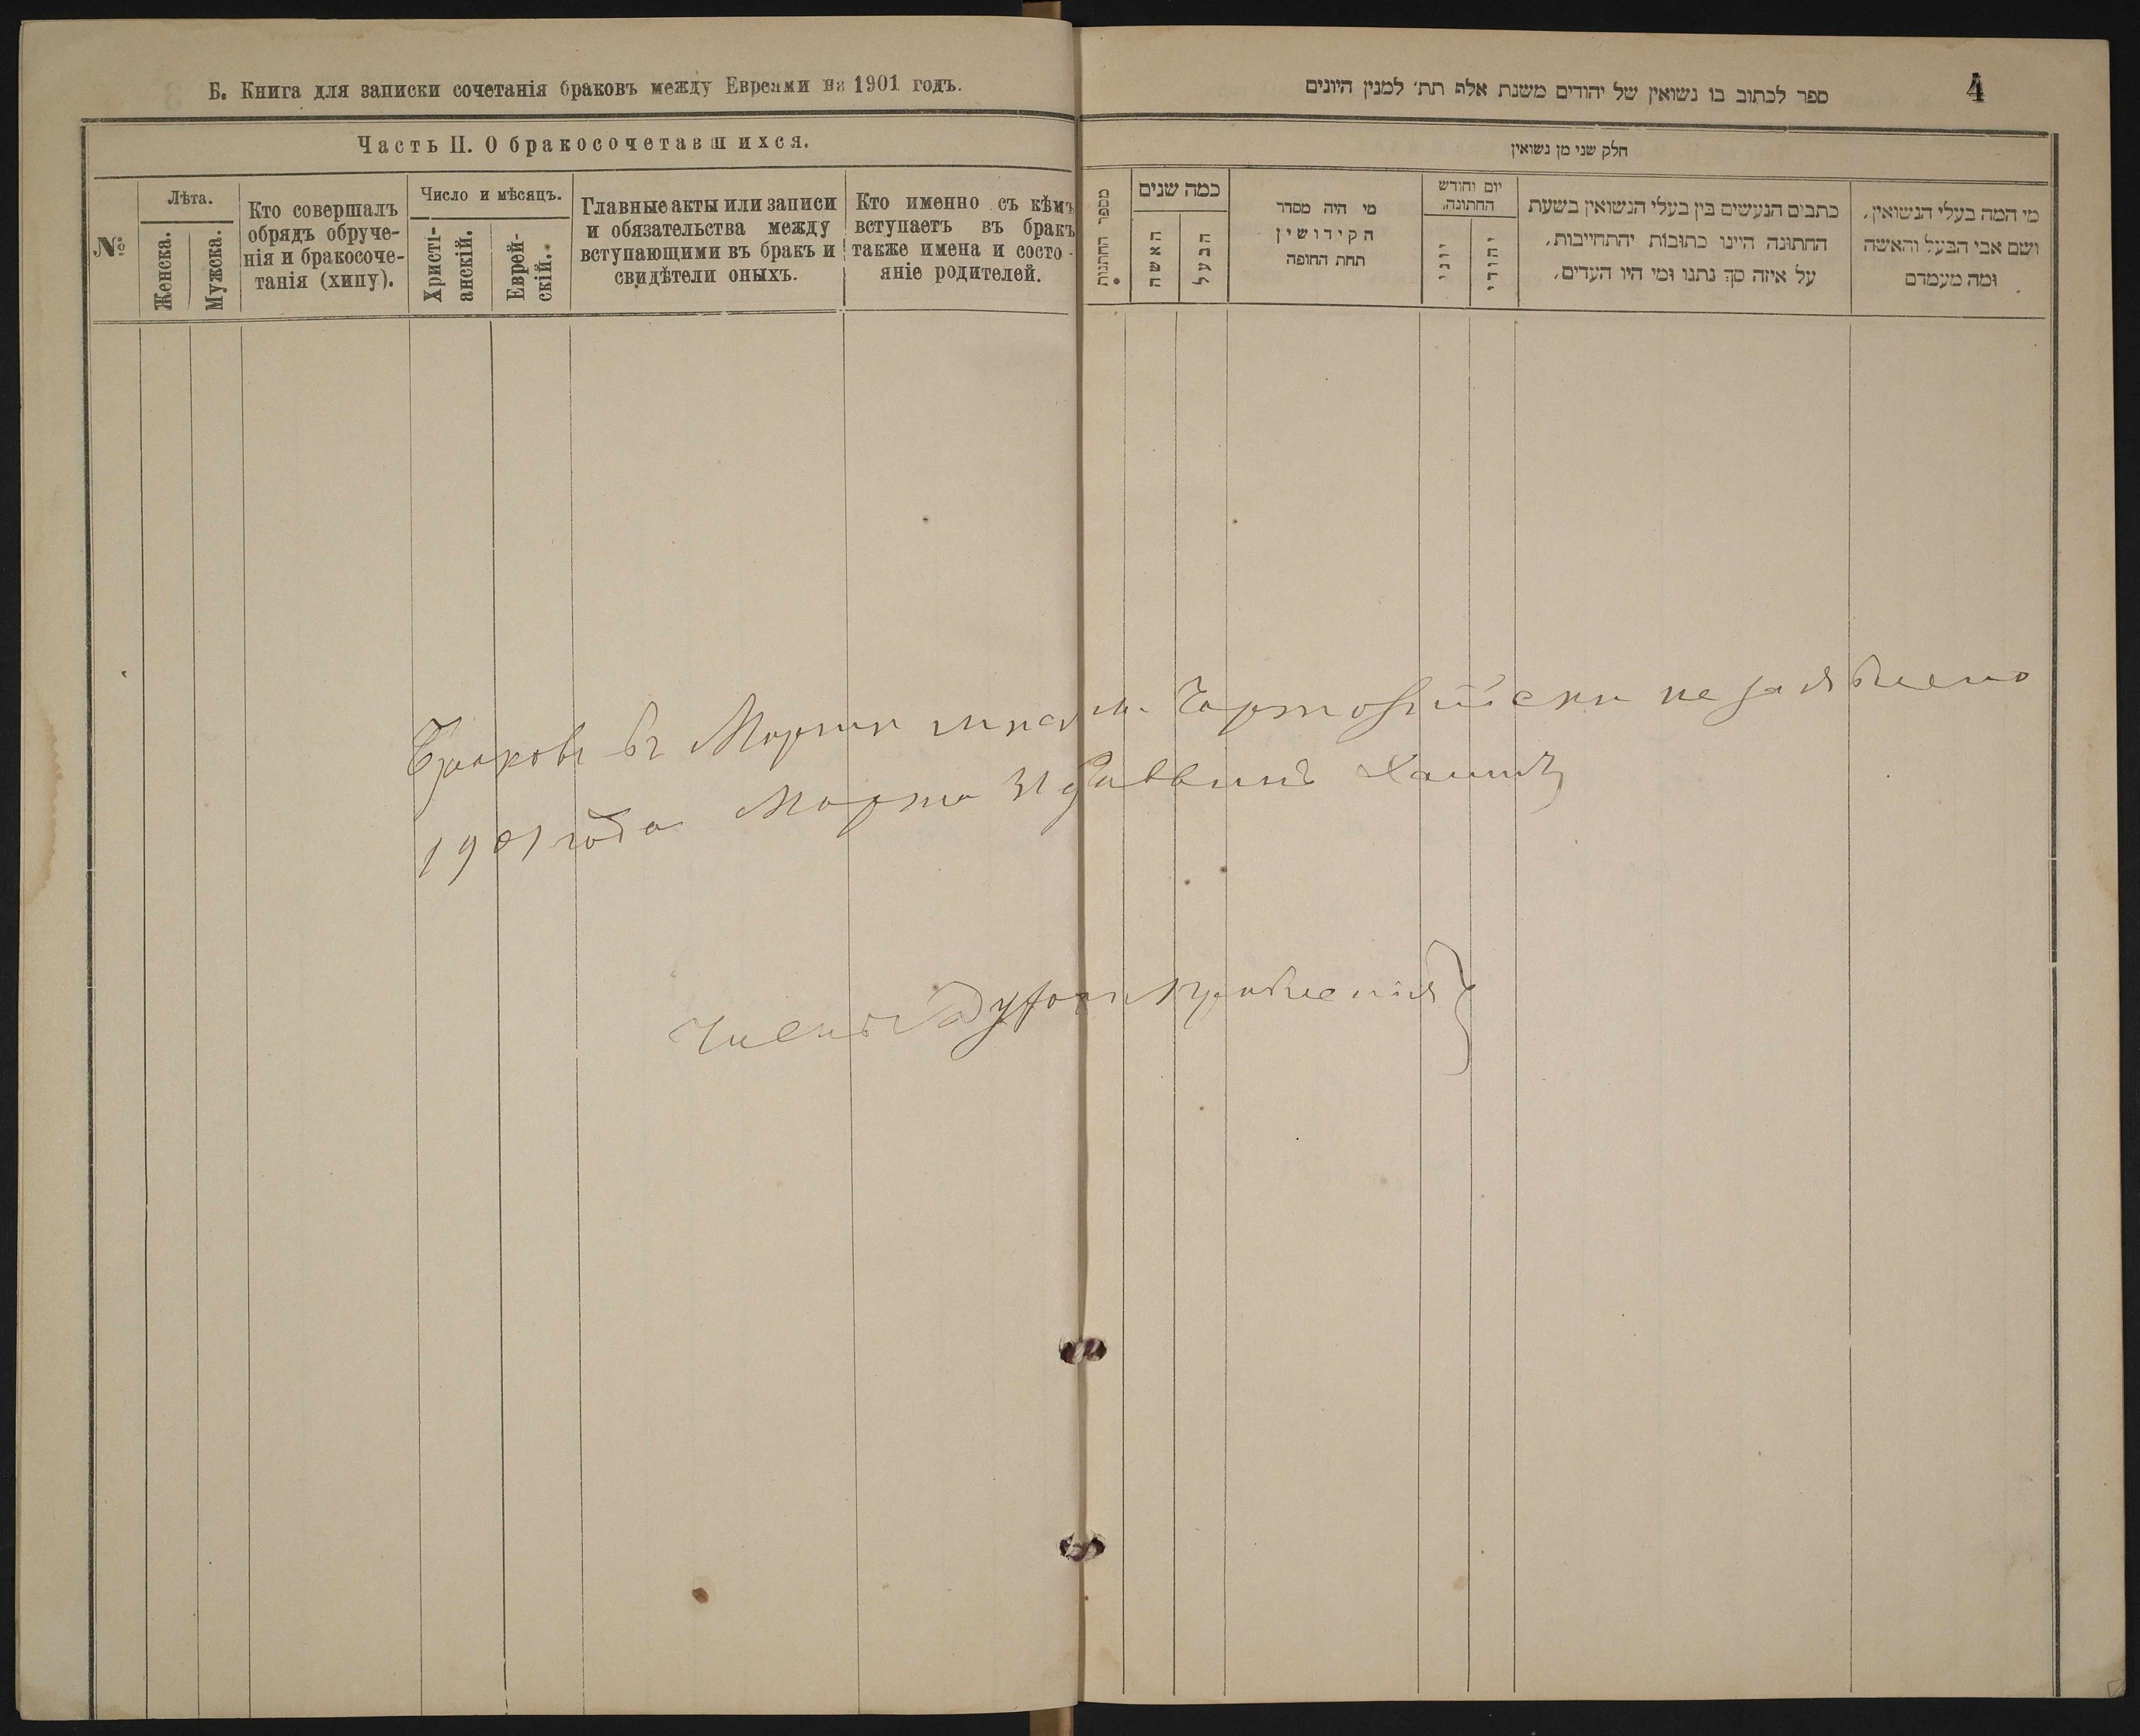 Б. Книга для записки сочетанія браковъ между Евреями на 1901 годъ.
Часть II. О бракосочетавшихся.
№
Лѣта.
Женска.
Мужска.
Кто совершалъ
обрядъ обруче-
нія и бракосоче-
танія (хипу).
Число и мѣсяцъ.
Христі-
анскій.
Еврей-
скій.
Главные акты или записи
и обязательства между
вступающими въ бракъ и
свидѣтели оныхъ.
Кто именно съ кѣмъ
вступаетъ въ бракъ
также имена и состо-
яніе родителей.
4
ספר לכתוב בו נשואין של יהודים משנת אלף תת׳ למנין היונים
חלק שני מן נשואין
מספר החתנות
כמה שנים
האשה
הבעל
מי היה מסדר
הקידושין
תחת החופה
יום וחודש
החתונה.
יוני
יהודי
כתבים הנעשים בין בעלי הנשואין בשעת
החתונה היינו כתובות יהתחייבות,
על איזה סך נתנו ומי היו העדים,
מי המה בעלי הנשואין,
ושם אבי הבעל והאשה
ומה מעמדם
Браковъ въ Мартѣ м. не заявлено
1901 года Марта 31 Раввинъ
Члены Духовн Правленія